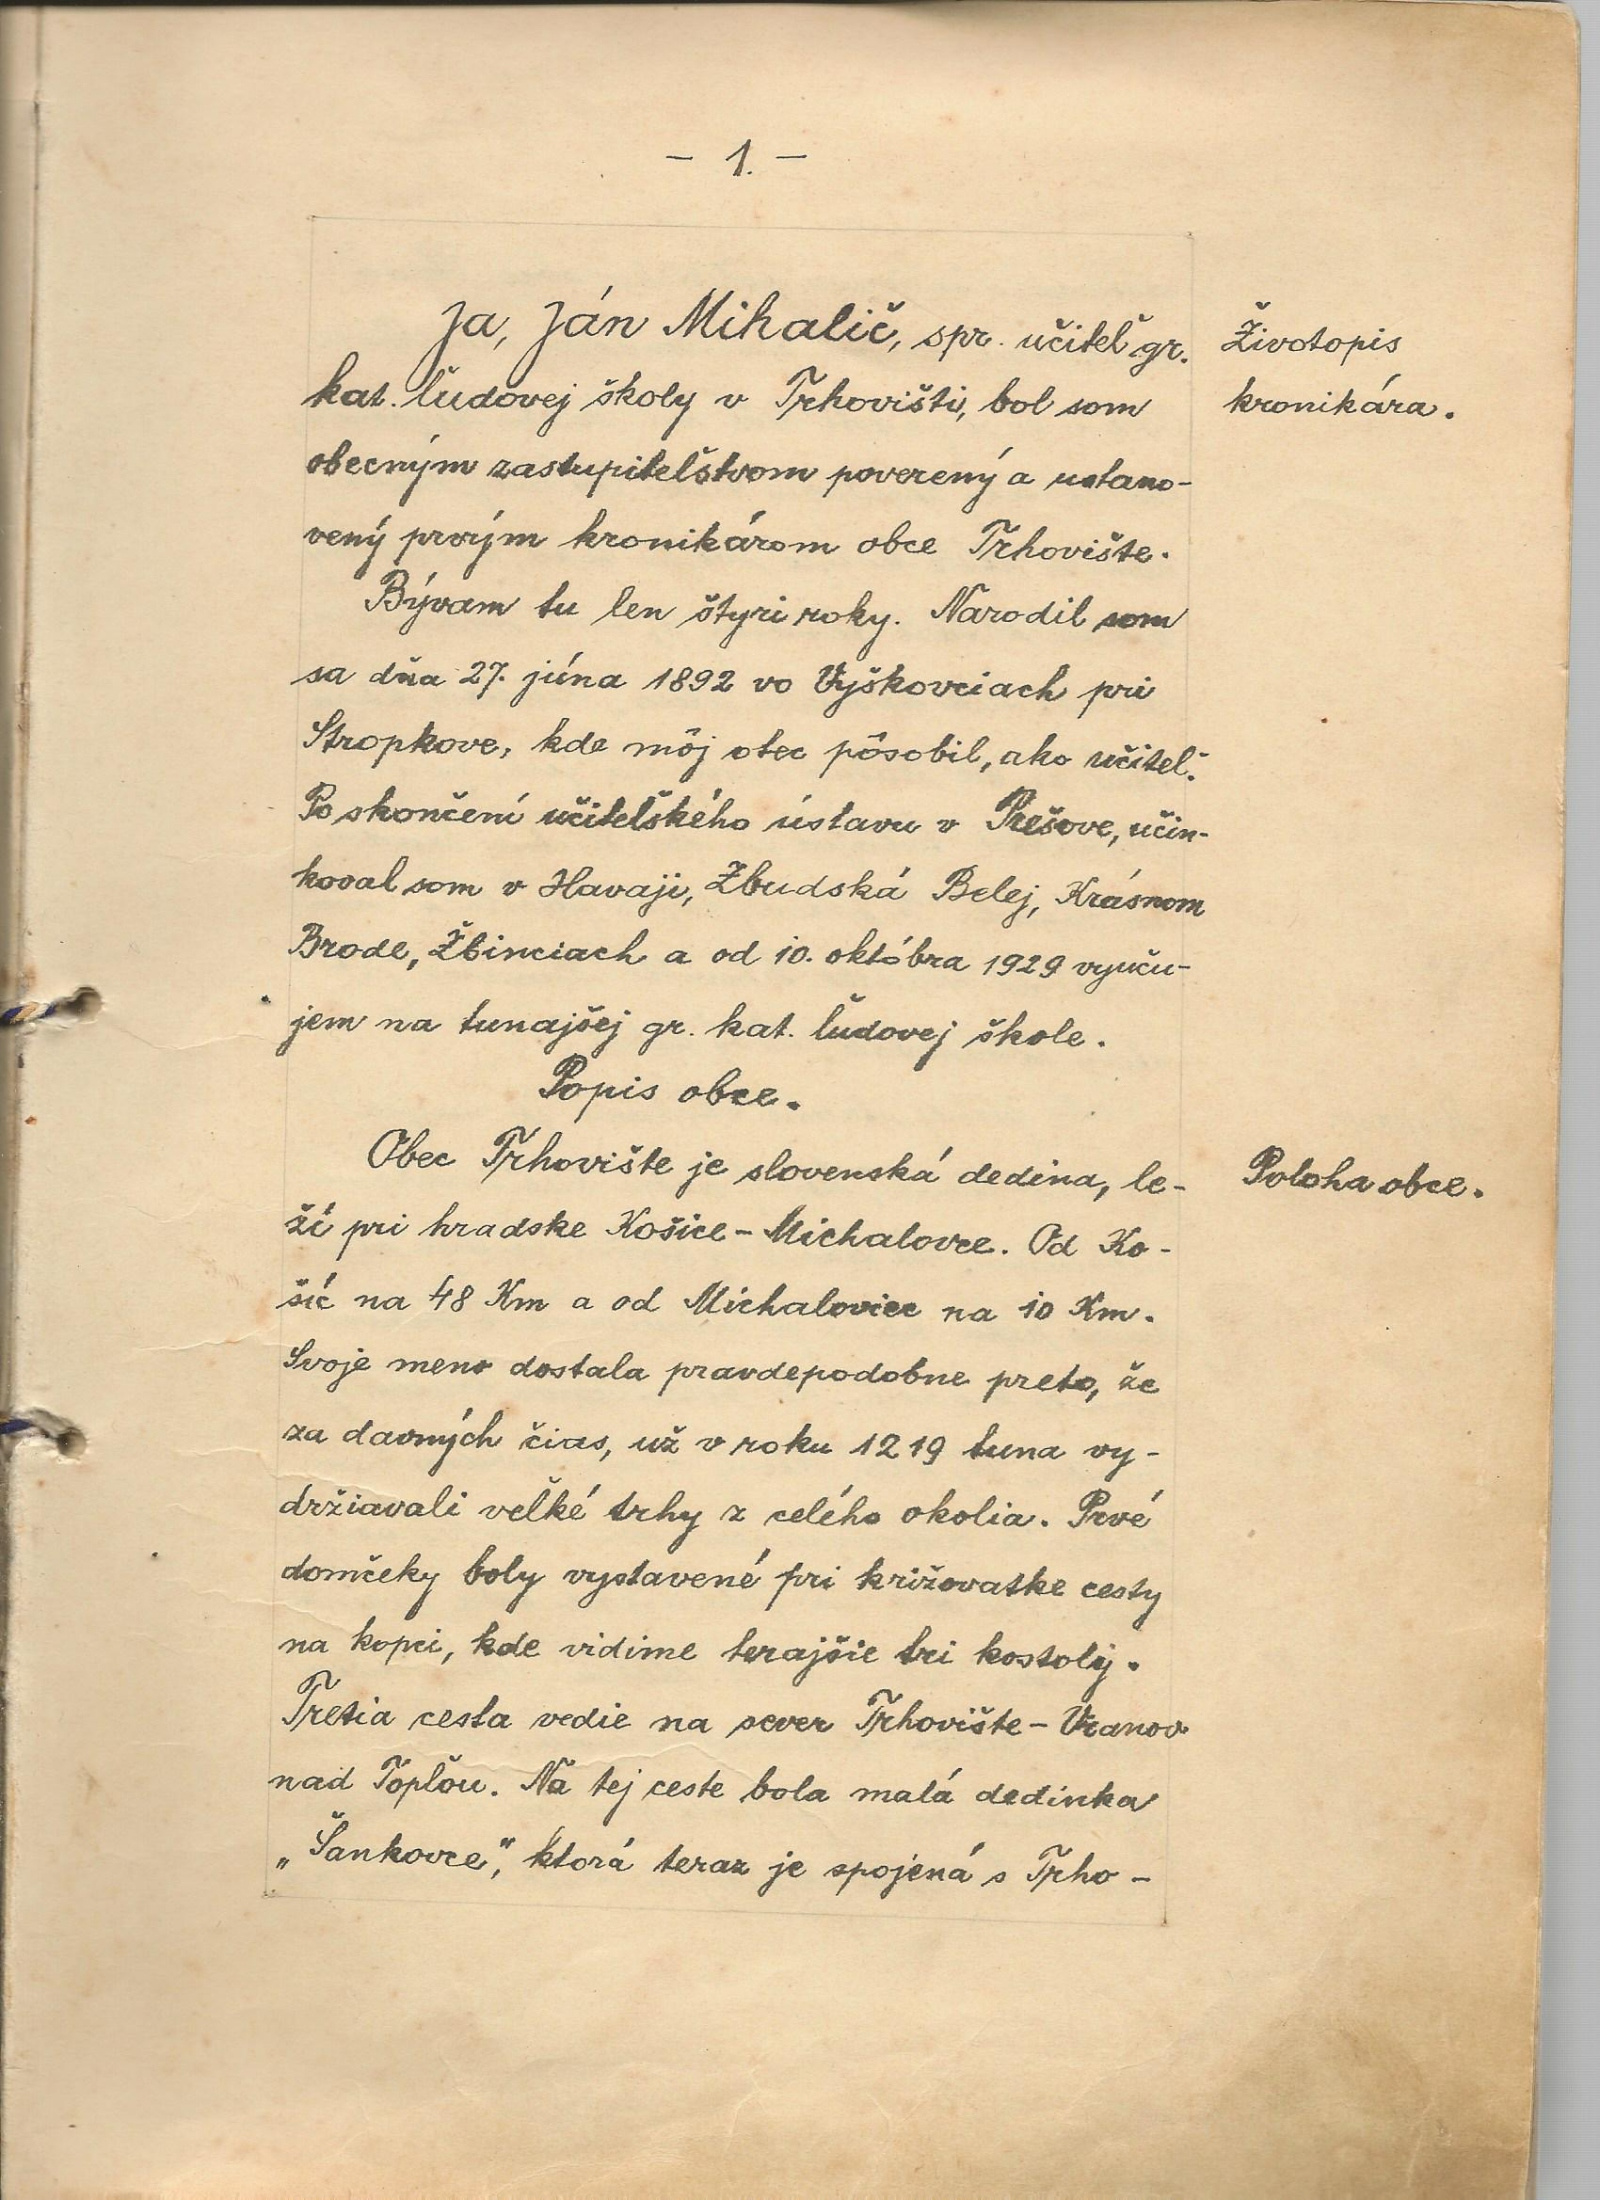 - 1. -
Ja, Ján Mihalič, spr. učiteľ gr.
Životopis
kat. ľudovej školy v Trhovišti, bol som
kronikára.
obecným zastupiteľstvom poverený a ustano-
vený prvým kronikárom obce Trhovište.
Bývam tu len štyri roky. Narodil som
sa dňa 27. júna 1892 vo Vyškovciach pri
Stropkove, kde môj otec pôsobil, ako učiteľ.
Po skončení učiteľského ústavu v Prešove, účin-
koval som v Havaji, Zbudská Belej, Krásnom
Brode, Žbinciach a od 10. októbra 1929 vyuču-
jem na tunajšej gr. kat. ľudovej škole.
Popis obce.
Obec Trhovište je slovenská dedina, le-
Poloha obce.
ží pri hradske Košice - Michalovce. Od Ko-
šíc na 48 Km a od Michaloviec na 10 Km.
Svoje meno dostala pravdepodobne preto, že
za davných čias, už v roku 1219 tuna vy-
držiavali veľké trhy z celého okolia. Prvé
domčeky boly vystavené pri križovatke cesty
na kopci, kde vidime terajšie tri kostoly.
Tretia cesta vedie na sever Trhovište - Vranov
nad Topľou. Na tej ceste bola malá dedinka
„Šankovce", ktorá teraz je spojená s Trho-